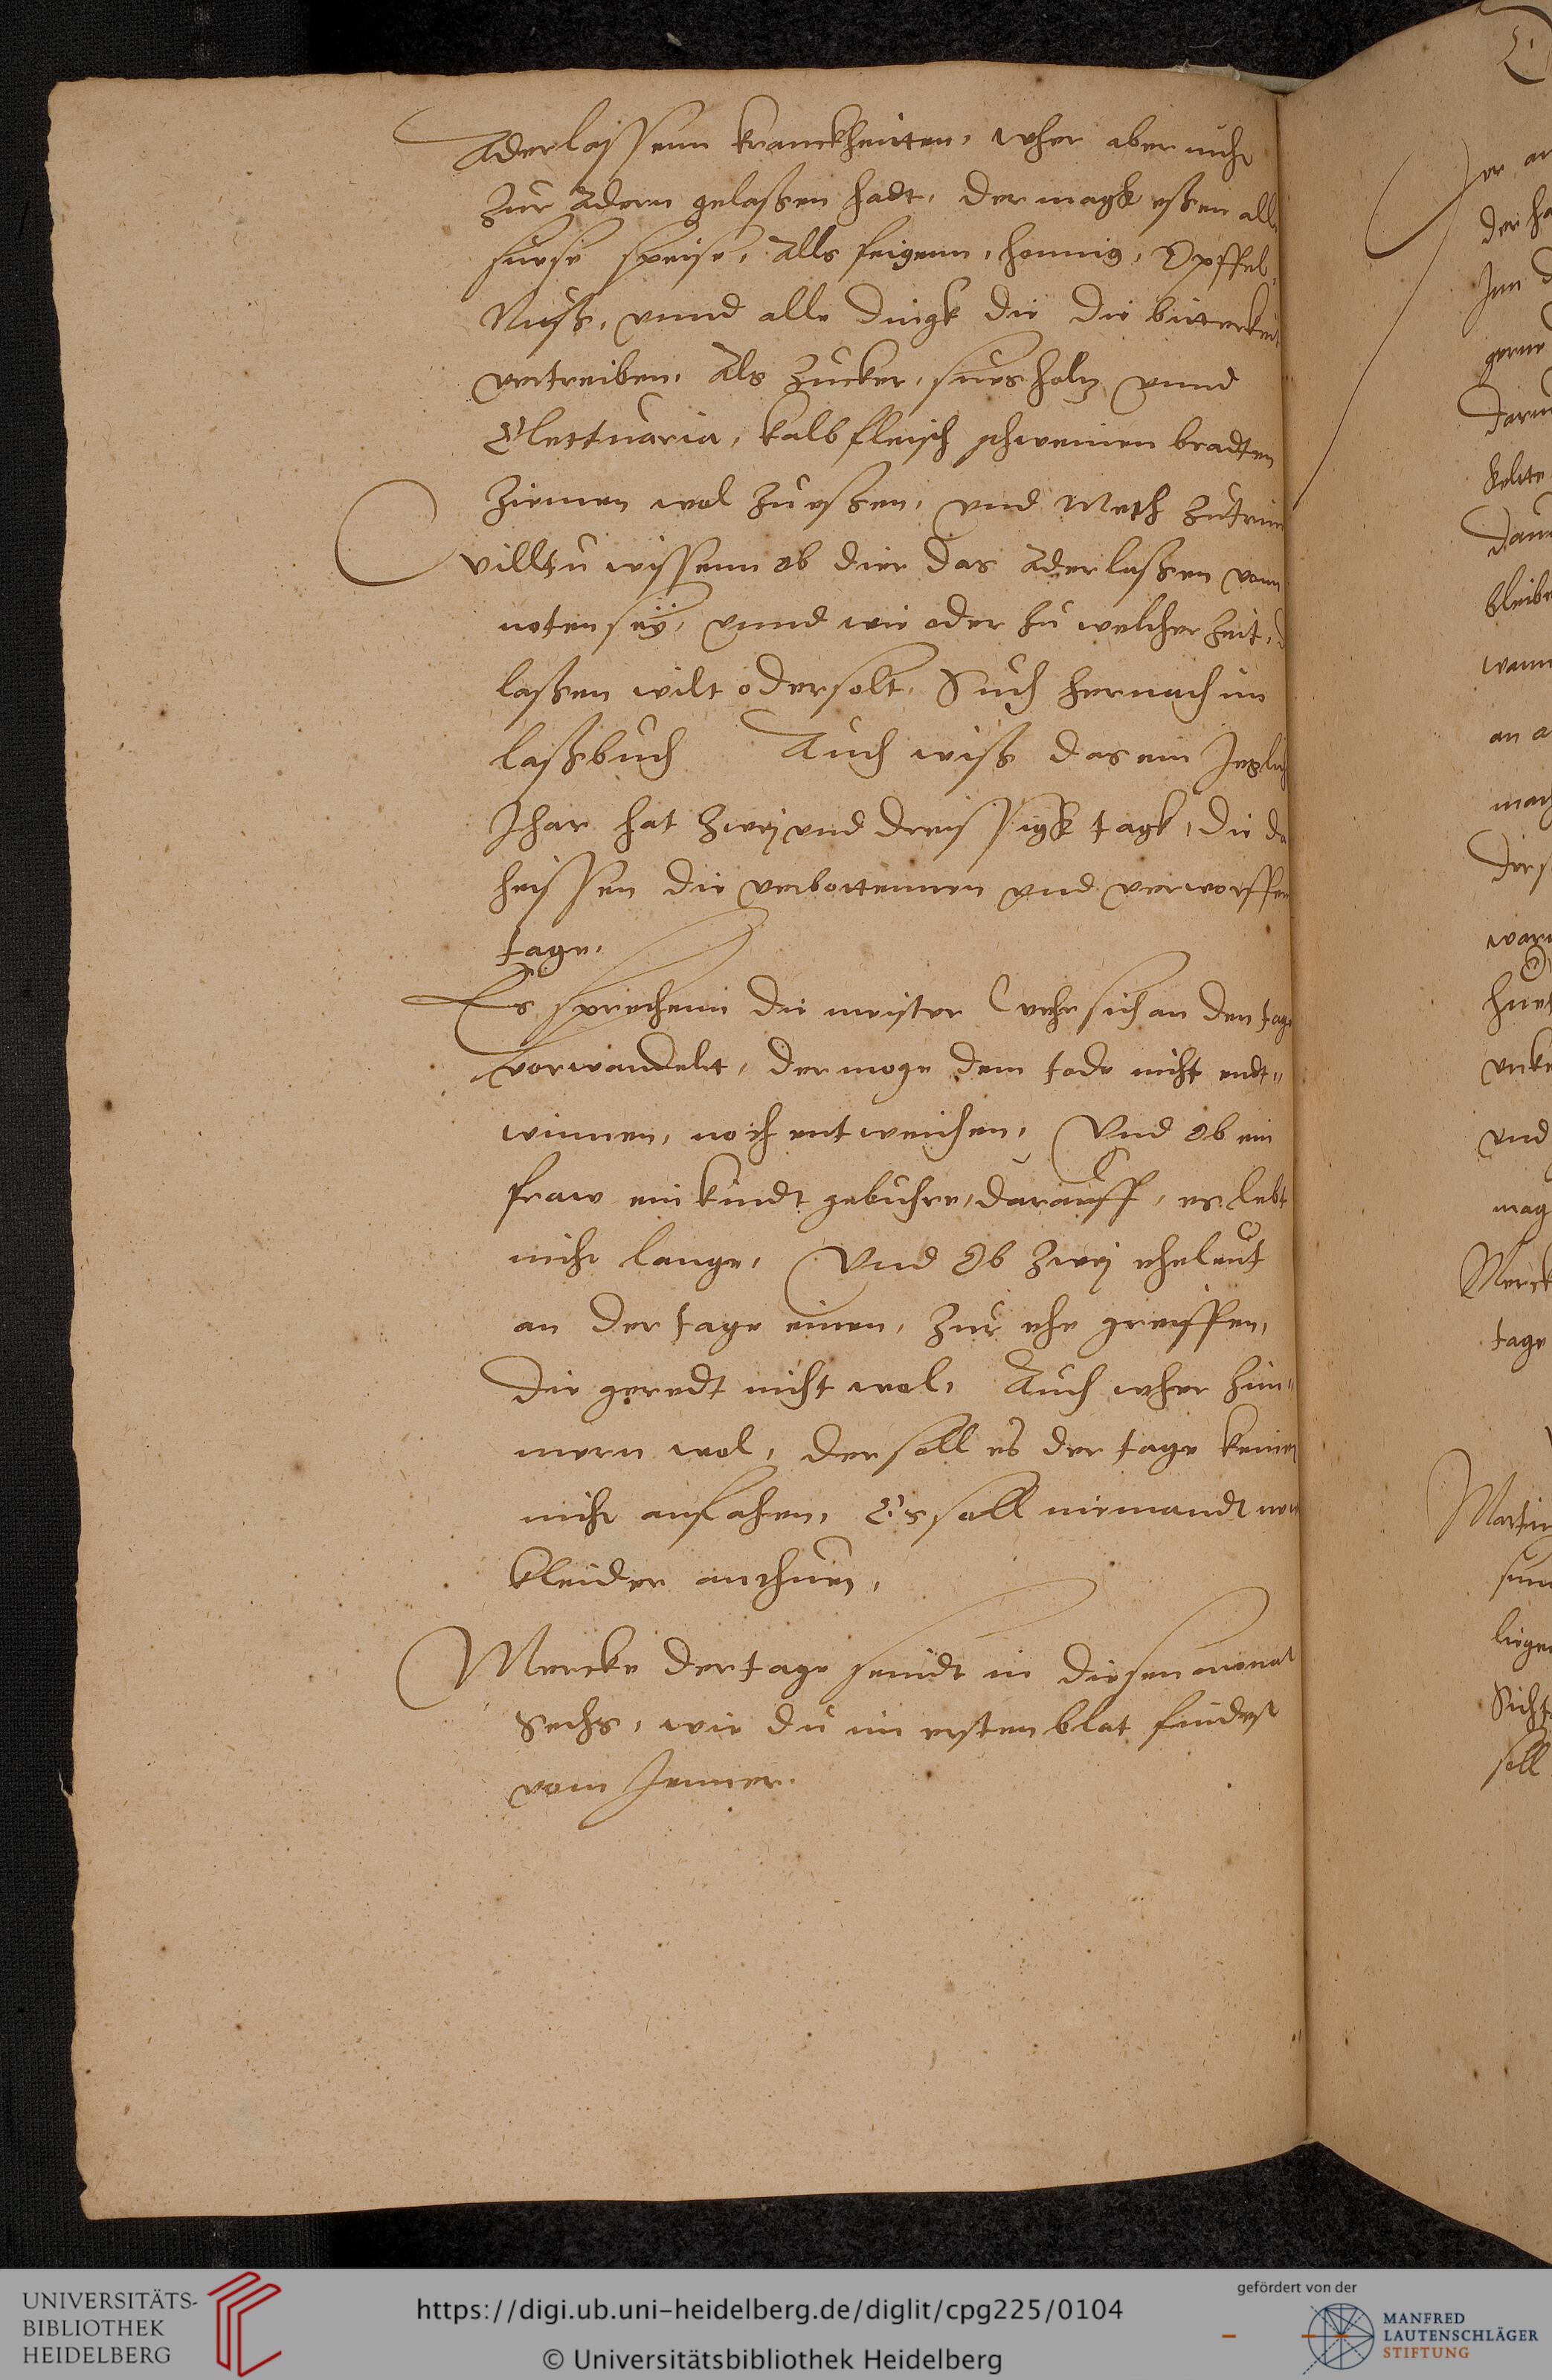 Aderlassenn kranckheitten, wher aber nicht
zur Adern gelaßen hadt, der magk eßen alle
suese speise, Alls feigenn, honnig, Opffel,
Nuß, vnnd alle dingk die die bitterkeit
vertreiben, Als Zucker, suesholz vnnd
Electuaria, kalbfleisch schweinen bradten
Ziemen wol zu eßen, vnd Meth zutrin
villtu wissenn ob dier das Aderlaßen vonn
noten seÿ, vnnd wie oder zu welcher Zeit,
laßen wilt oder solt, Such hernach im
laßbuch Auch wiß das ein Jeglich
Jhar hat Zwej vnd dreissigk tagk, die da
heissen die verbottennen vnd verworffen
tage,
Es sprechenn die meister wehr sich an den tage
vorwandelt, der moge dem tode nicht endt„
winnen, noch entweichen, Vnd Ob ein
fraw ein kindt gebuhre, darauff, es lebt
nicht lange, Vnd Ob Zwej eheleut
an der tage einen, Zur ehe greiffen,
die geredt nicht wol, Auch wher Zim„
mern wol, der soll es der tage keinen
nicht anfahen, Es soll niemandt new
kleider anthuen,
Mercke der tage seindt in diesen monat
Sechs, wie du im ersten blat findest
vom Jenner.
der ha
Jnn d
gerne
darum
bleibe
wann
an a
mach
vnd
mag
Merck
tage
Martin
liegen
soll
UNIVERSITÄTS-
BIBLIOTHEK
HEIDELBERG
https://digi.ub.uni-heidelberg.de/diglit/cpg225/0104
© Universitätsbibliothek Heidelberg
gefördert von der
MANFRED
LAUTENSCHLÄGER
STIFTUNG